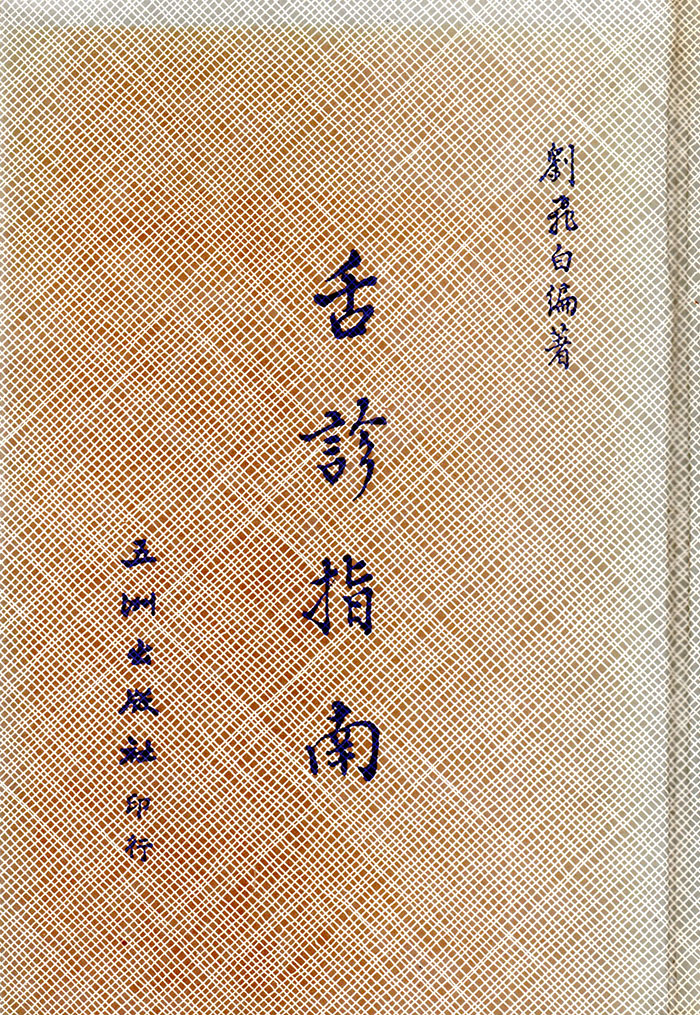 劉飛白編著
舌診指南
五洲出版社印行